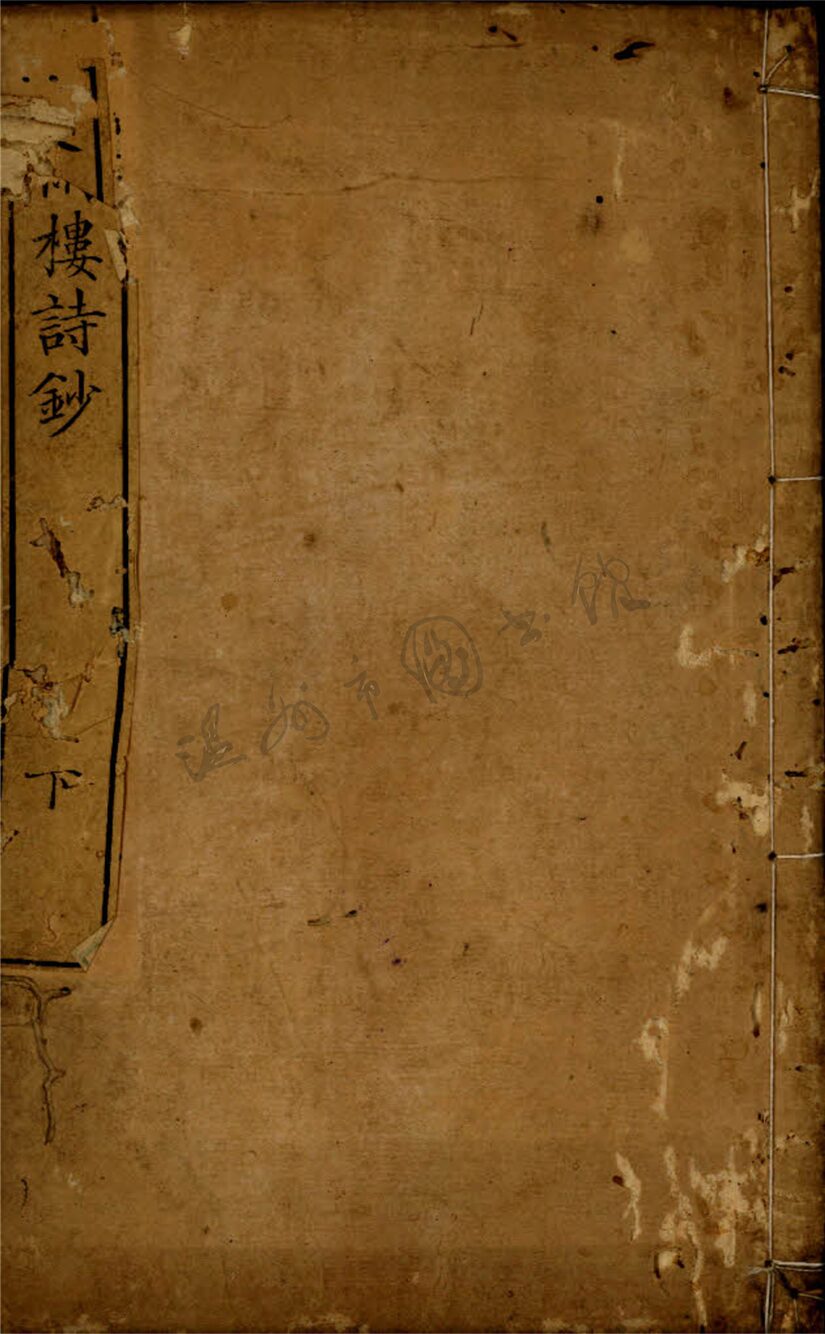 樓詩鈔
下
温州市圖书馆